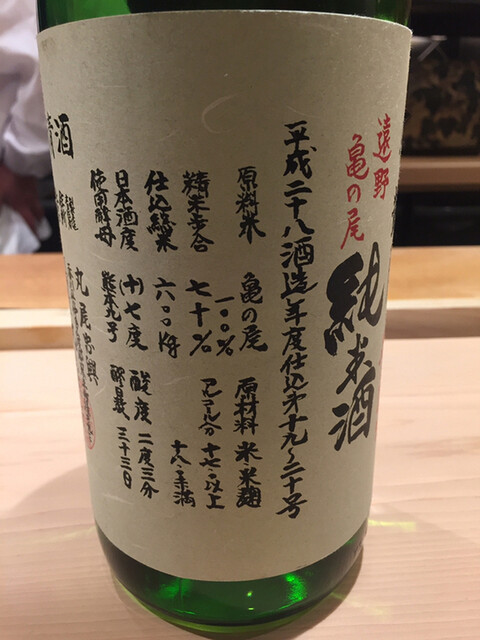 遠野
亀の尾
純米酒
平成二十八酒造年度仕込み第十九~二十号
原料米 亀の尾一〇〇%
原材料 米・米麹
精米歩合 七十%
アルコール分 十七・〇以上
十八・〇未満
仕込総米 六〇〇kg
日本酒度 (+)七度
酸度 二度三分
使用酵母 熊本九号
醪日数 三十三日
清酒
丸尾忠興